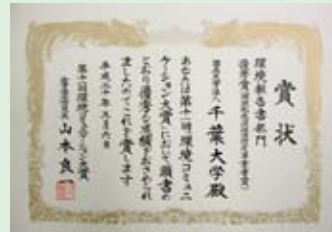 賞状
環境報告書部門
優秀賞(環境配慮促進法特定事業者賞)
国立大学法人 千葉大学殿
あなたは第十一回環境コミュニ
ケーション大賞において頭書の
とおり優秀な成績をおさめられ
ましたのでこれを賞します
平成二十年三月六日
第十一回環境コミュニケーション大賞
審査委員長 山本良一